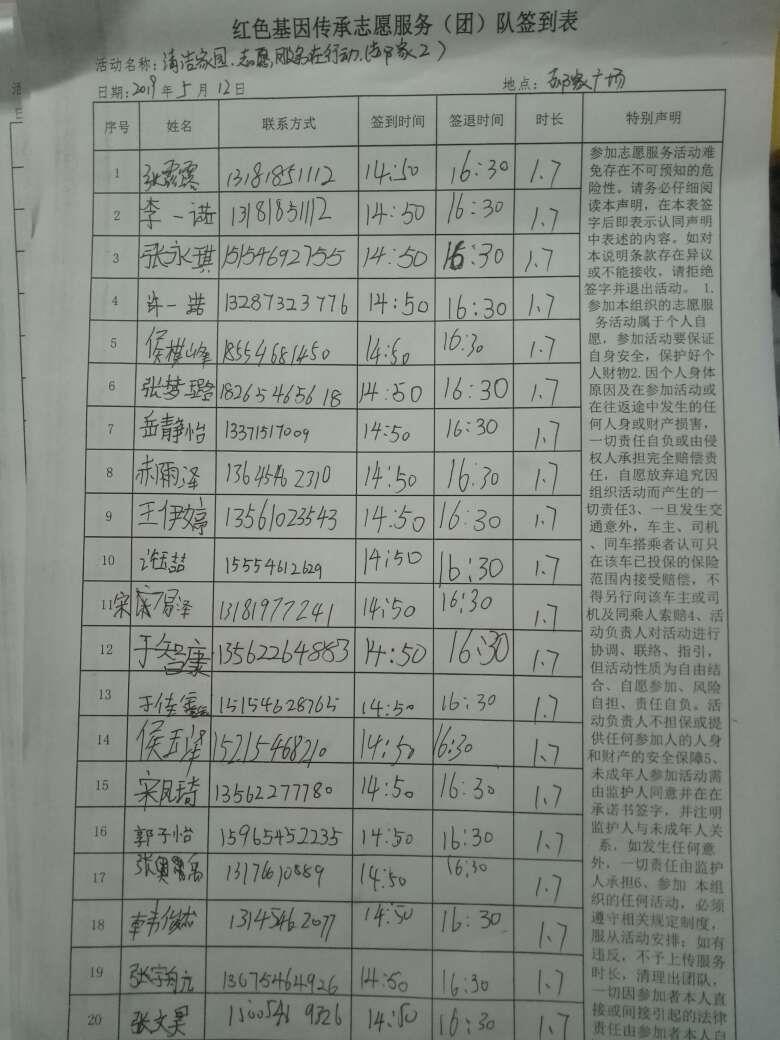 红色基因传承志愿服务（团）队签到表
活动名称：清洁家园.志愿服务在行动.(邵家2)
日期：2019年5月12日 地点：邵家广场
序号 姓名 联系方式 签到时间 签退时间 时长 特别声明
1 张露露 13181851112 14:50 16:30 1.7
2 李一诺 13181851112 14:50 16:30 1.7
3 张永琪 15154692755 14:50 16:30 1.7
4 许一诺 13287323776 14:50 16:30 1.7
5 侯横山峰 18554681450 14:50 16:30 1.7
6 张梦璐 18265465618 14:50 16:30 1.7
7 岳静怡 13371517009 14:50 16:30 1.7
8 郝雨泽 13645462310 14:50 16:30 1.7
9 王伊婷 13561023543 14:50 16:30 1.7
10 许钰喆 15554612629 14:50 16:30 1.7
11 宋 泽 13181977241 14:50 16:30 1.7
12 于智康 13562264883 14:50 16:30 1.7
13 于佳鑫 15154628765 14:50 16:30 1.7
14 侯玉泽 15215468210 14:50 16:30 1.7
15 宋凤琦 13562277780 14:50 16:30 1.7
16 郭子怡 15965452235 14:50 16:30 1.7
17 张 14:50 16:30 1.7
18 李韦俊杰 13145462077 14:50 16:30 1.7
19 张宇为元 13675464926 14:50 16:30 1.7
20 张文昊 9326 14:50 16:30 1.7
参加志愿服务活动难
免存在不可预知的危
险性。请务必仔细阅
读本声明，在本表签
字后即表示认同声明
中表述的内容。如对
本说明条款存在异议
或不能接收，请拒绝
签字并退出活动。 1.
参加本组织的志愿服
务活动属于个人自
愿，参加活动要保证
自身安全，保护好个
人财物2.因个人身体
原因及在参加活动或
在往返途中发生的任
何人身或财产损害，
一切责任自负或由侵
权人承担完全赔偿责
任，自愿放弃追究因
组织活动而产生的一
切责任3、一旦发生交
通意外，车主、司机
、同车搭乘者认可只
在该车已投保的保险
范围内接受赔偿，不
得另行向该车主或司
机及同乘人索赔4、活
动负责人对活动进行
协调、联络、指引，
但活动性质为自由结
合、自愿参加、风险
自担、责任自负。活
动负责人不担保或提
供任何参加人的人身
和财产的安全保障5、
未成年人参加活动需
由监护人同意并在在
承诺书签字，并注明
监护人与未成年人关
系，如发生任何意
外，一切责任由监护
人承担6、参加 本组
织的任何活动，必须
遵守相关规定制度，
服从活动安排；如有
违反，不予上传服务
时长，清理出团队，
一切因参加者本人直
接或间接引起的法律
责任由参加者本人自